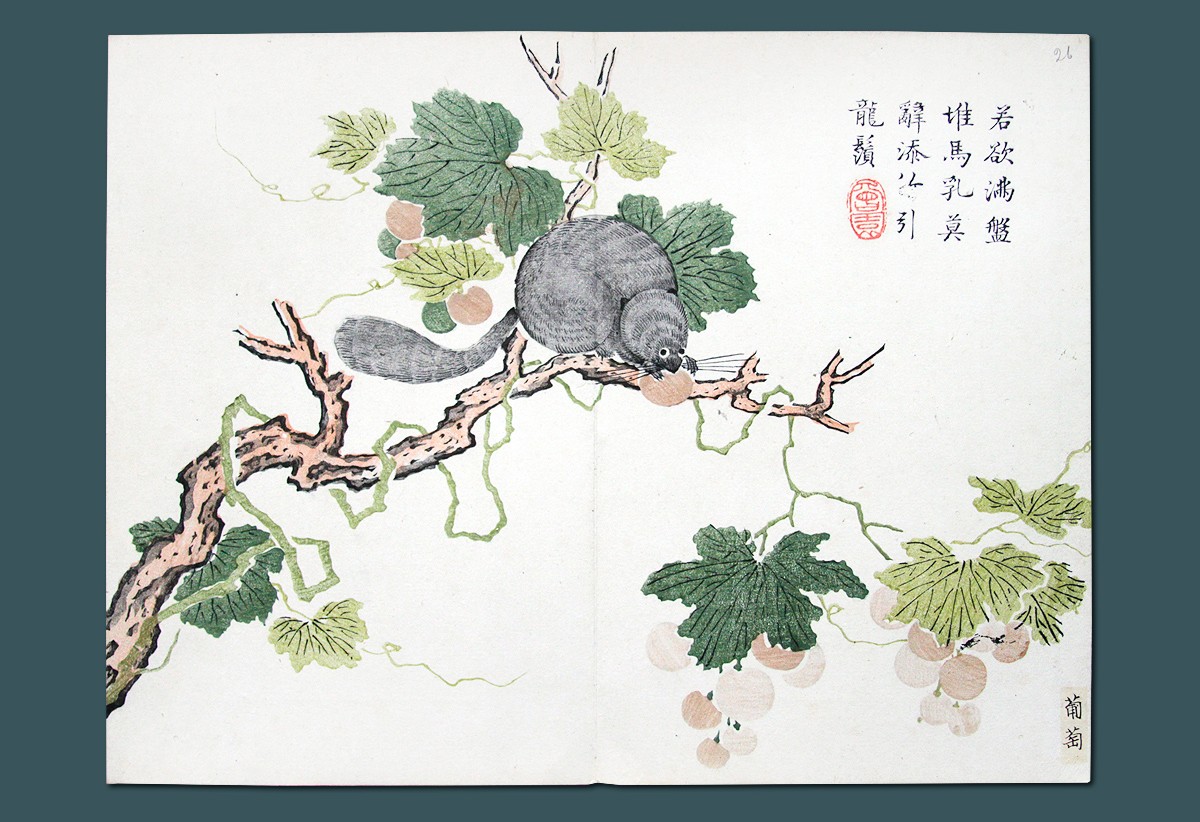 26
若欲滿盤
堆馬乳莫
辭添引
龍鬚
葡萄